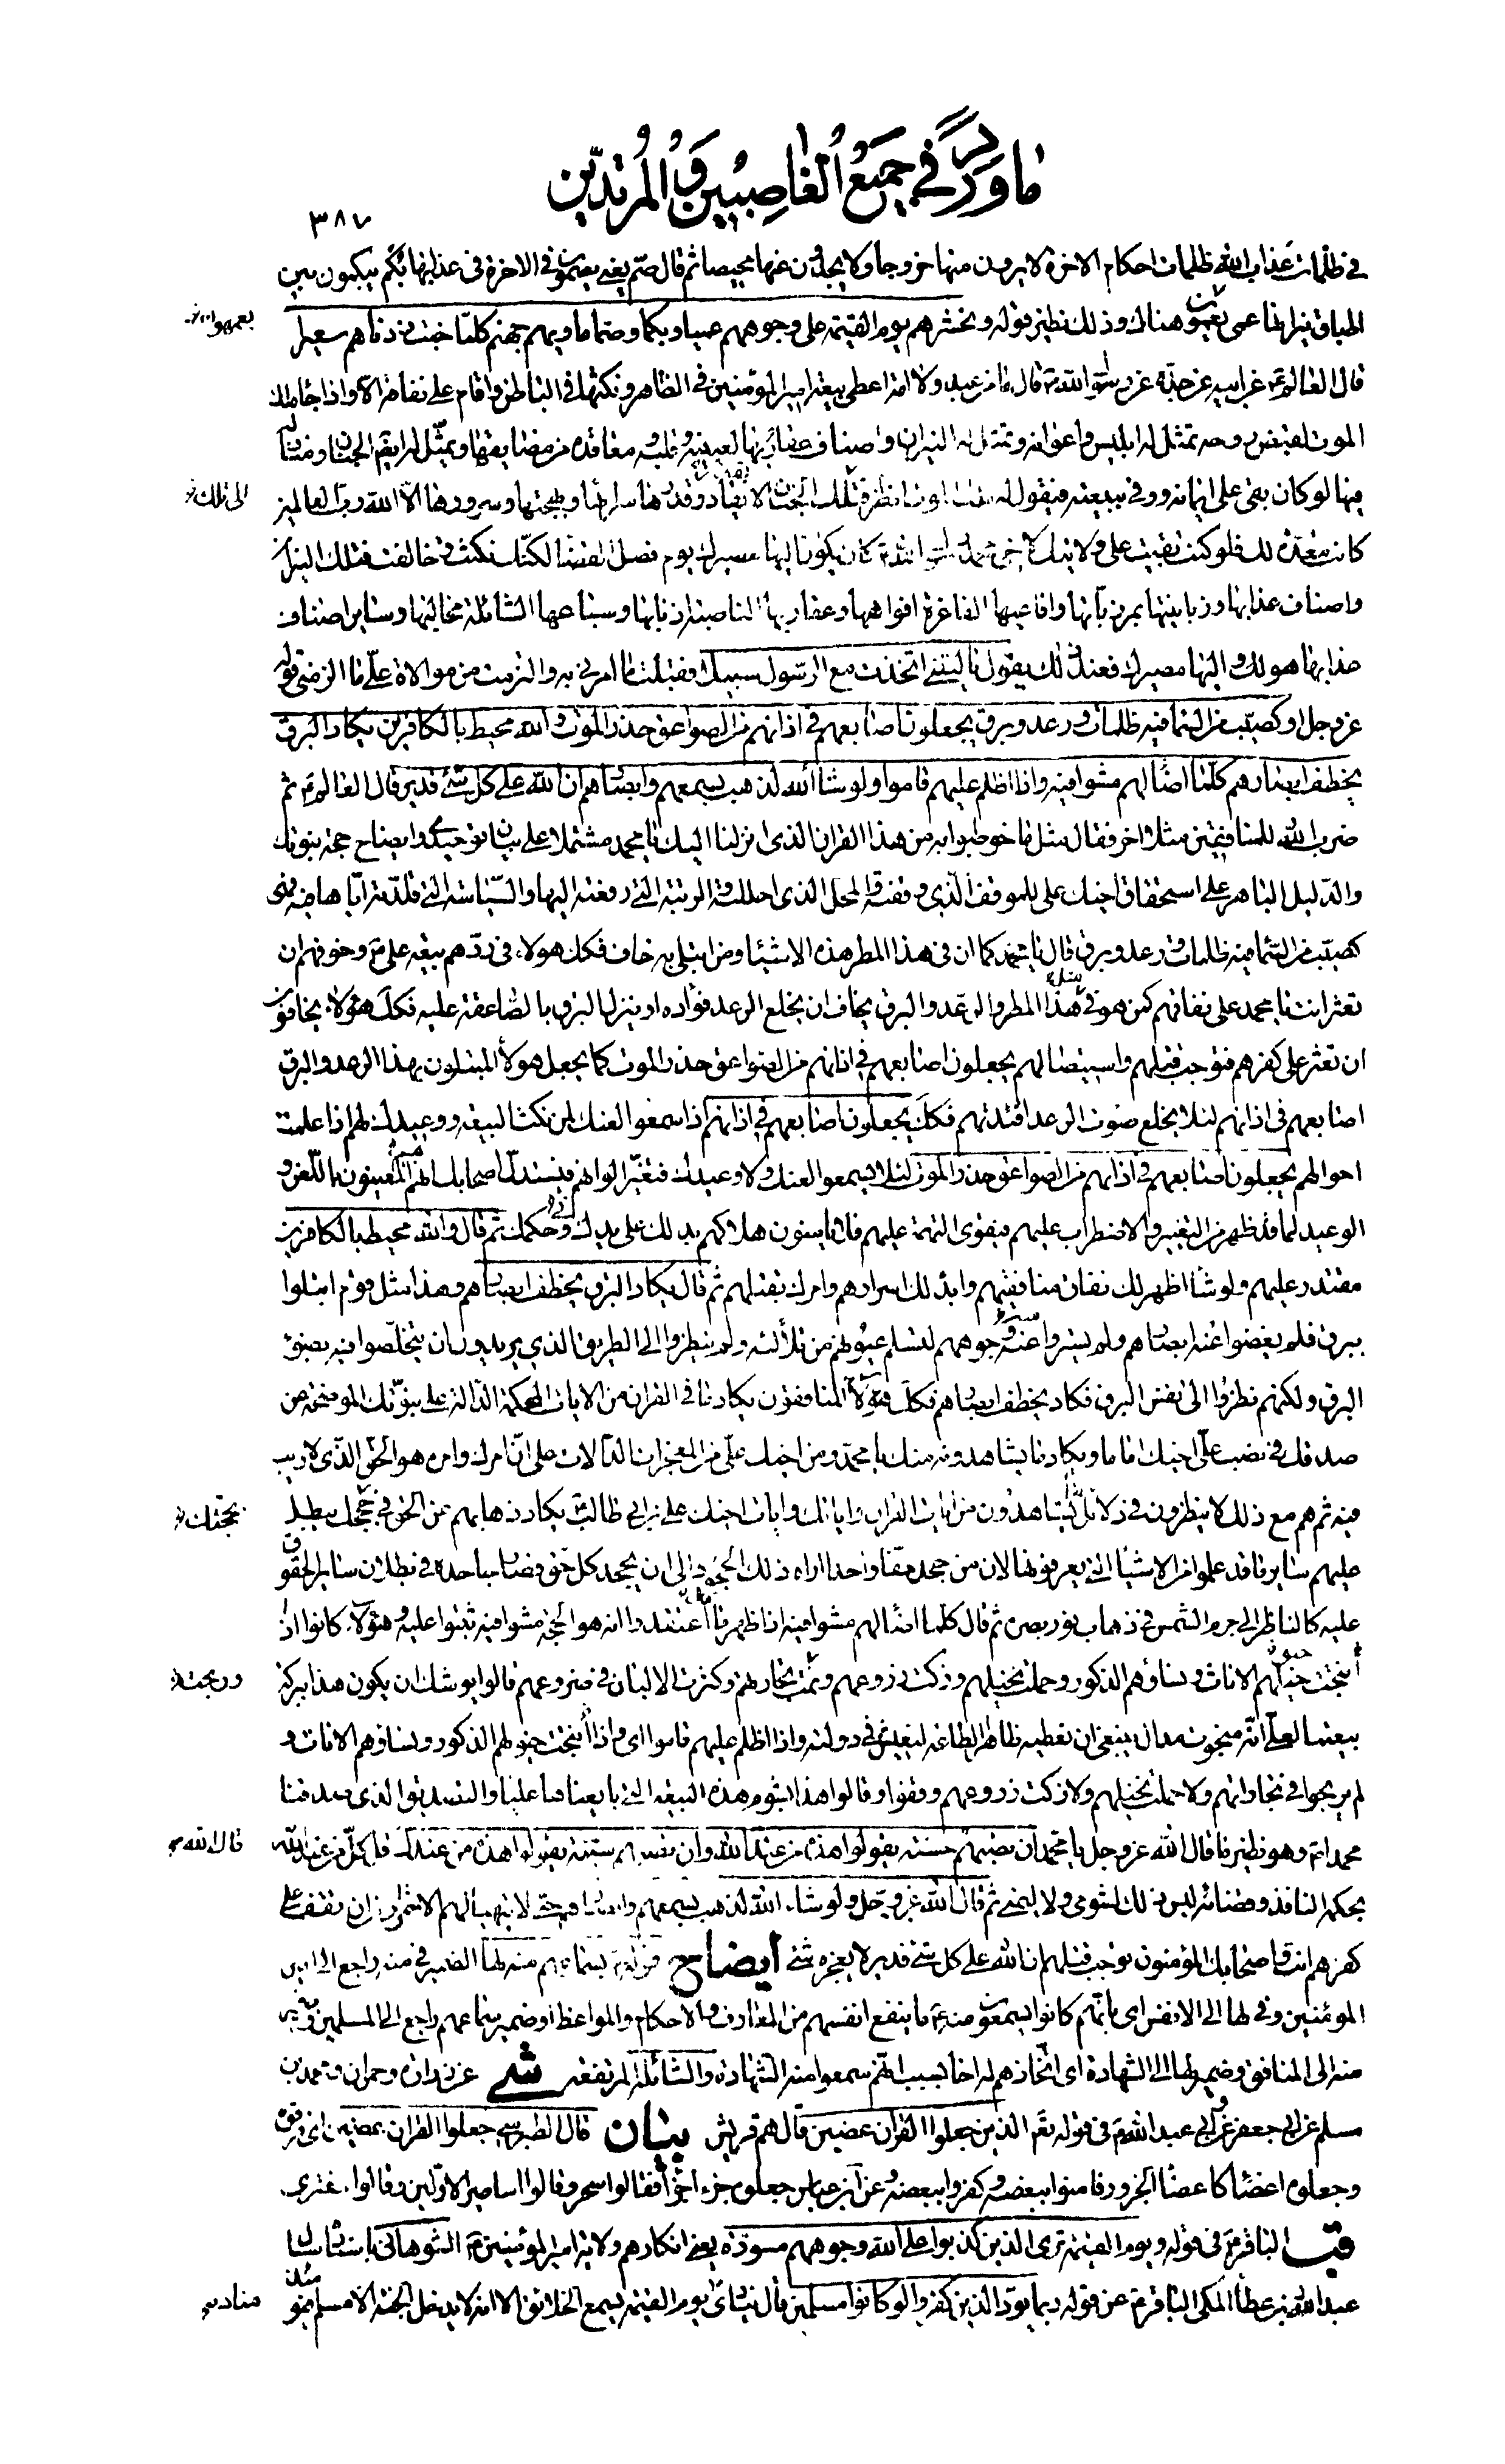 ما ورد في جميع الغاصبين والمرتدين
٣٨٧
في ظلمات عذاب الله ظلمات احكام الاخرة لا يرون منها خروجا ولا يجدون عنها محيصا ثم قال صم يعني يصمون في الاخرة في عذابها بكم يبكمون بين
اطباق نيرانها عمى يعمون هناك وذلك نظير قوله ونحشرهم يوم القيمة على وجوههم عميا وبكما وصما ماويهم جهنم كلما خبت زدناهم سعيرا
يعمهوا
قال العالم عن ابيه عن جده عن رسول الله ص قال ما من عبد ولا امة اعطى بيعة امير المؤمنين في الظاهر ونكثها في الباطن واقام على نفاقه الا واذا جاء ملك
الموت لقبض روحه تمثل له ابليس واعوانه وتمثل له النيران واصناف عقاربها لعينيه وقلبه ومقاعده من مضايقها ويمثل له ايضا الجنان ومنازله
فيها لو كان بقى على ايمانه ووفى ببيعته فيقول له ملك الموت انظر فتلك الجنان لا يقادر قدر سرائها وبهجتها وسرورها الا الله رب العالمين
الى تلك
كانت معدة لك فلو كنت بقيت على ولايتك لاخي محمد رسول الله ص كان يكون اليها مصيرك يوم فصل القضا لكنك نكثت وخالفت فتلك النيران
واصناف عذابها وزبانيتها بمرزباتها وافاعيها الفاغرة افواهها وعقاربها الناصبة اذنابها وسباعها الشائلة مخالبها وساير اصناف
عذابها هو لك واليها مصيرك فعند ذلك يقول يا ليتني اتخذت مع الرسول سبيلا فقبلت ما امرني به والتزمت من موالاة علي ما الزمني قوله
عز وجل او كصيب من السما فيه ظلمات ورعد وبرق يجعلون اصابعهم في اذانهم من الصواعق حذر الموت والله محيط بالكافرين يكاد البرق
يخطف ابصارهم كلما اضا لهم مشوا فيه واذا اظلم عليهم قاموا ولو شا الله لذهب بسمعهم وابصارهم ان الله على كل شئ قدير قال العالم ثم
ضرب الله للمنافقين مثلا اخر فقال مثل ما خوطبوا به من هذا القران الذي انزلنا اليك يا محمد مشتملا على بيان توحيدي وايضاح حجة نبوتك
والدليل الباهر على استحقاق اخيك علي للموقف الذي وقفته والمحل الذي احللته والرتبة التي رفعته اليها والسياسة التي قلدته اياها فهي
كصيب من السما فيه ظلمات ورعد وبرق قال يا محمد كما ان في هذا المطر هذه الاشيا ومن ابتلى به خاف فكك هولاء في ردهم بيعة علي ع وخوفهم ان
تعثر انت يا محمد على نفاقهم كمن هو في مثل هذا المطر والرعد والبرق يخاف ان يخلع الرعد فؤاده او ينزل البرق بالصاعقة عليه فكك هولاء يخافون
ان تعثر على كفرهم فتوجب قتلهم واستيصالهم يجعلون اصابعهم في اذانهم من الصواعق حذر الموت كما يجعل هولا المبتلون بهذا الرعد والبرق
اصابعهم في اذانهم لئلا يخلع صوت الرعد افئدتهم فكك يجعلون اصابعهم في اذانهم اذا سمعوا لعنك لمن نكث البيعة ووعيدك لهم اذا علمت
احوالهم يجعلون اصابعهم في اذانهم من الصواعق حذر الموت لئلا يسمعوا لعنك ولا وعيدك فتغير الوانهم فيستدل اصحابك انهم هم المعنيون باللعن و
الوعيد لما قد ظهر من التغيير والاضطراب عليهم فيقوى التهمة عليهم فلا يامنون هلاكهم بذلك على يدك وفي حكمك ثم قال والله محيط بالكافرين
مقتدر عليهم ولو شا اظهر لك نفاق منافقيهم وابدى لك اسرارهم وامرك بقتلهم ثم قال يكاد البرق يخطف ابصارهم وهذا مثل قوم ابتلوا
ببرق فلم يغضوا عنه ابصارهم ولم يستروا عنه وجوههم لتسلم عيونهم من تلألئه ولم ينظروا الى الطريق الذي يريدون ان يتخلصوا فيه بضوء
البرق ولكنهم نظروا الى نفس البرق فكاد يخطف ابصارهم فكك هولا المنافقون يكاد ما في القران من الايات المحكمة الدالة على نبوتك الموضحة عن
صدقك في نصب علي اخيك اماما ويكاد ما يشاهدونه منك يا محمد ومن اخيك علي من المعجزات الدالات على ان امرك وامره هو الحق الذي لا ريب
فيه ثم هم مع ذلك لا ينظرون في دلائل ما يشاهدون من ايات القران واياتك وايات اخيك علي بن ابي طالب يكاد ذهابهم عن الحق في حججك يبطل
بجحدك
عليهم ساير ما قد علموا من الاشيا التي يعرفونها لان من جحد حقا واحدا اراه ذلك الجحود الى ان يجحد كل حق فصار جاحده في بطلان ساير الحقوق
عليه كالناظر الى جرم الشمس في ذهاب نور بصره ثم قال كلما اضا لهم مشوا فيه اذا ظهر ما اعتقدوا انه هو الحجة مشوا فيه ثبتوا عليه وهولاء كانوا اذا
انتجت خيولهم الاناث ونساؤهم الذكور وحملت نخيلهم وزكت زروعهم ونمت تجارتهم وكثرت الالبان في ضروعهم قالوا يوشك ان يكون هذا ببركة
وربحت
بيعتنا لعلي انه مبخوت مدال ينبغي ان نعطيه ظاهر الطاعة لنعيش في دولته واذا اظلم عليهم قاموا اي واذا انتجت خيولهم الذكور ونساؤهم الاناث و
لم يربحوا في تجاراتهم ولا حملت نخيلهم ولا زكت زروعهم وقفوا وقالوا هذا بشوم هذه البيعة التي بايعناها عليا والتصديق الذي صدقنا
محمدا ص وهو نظير ما قال الله عز وجل يا محمد ان تصبهم حسنة يقولوا هذه من عند الله وان تصبهم سيئة يقولوا هذه من عندك قل كل من عند الله
قال الله
بحكمه النافذ وقضائه ليس ذلك لشومي ولا ليمني ثم قال الله عز وجل ولو شاء الله لذهب بسمعهم وابصارهم حتى لا يتهيأ لهم الاحتراز ان تقف على
كفرهم انت واصحابك المؤمنون توجب قتلهم ان الله على كل شئ قدير لا يعجزه شئ ايضاح قوله بسماعهم منه لها الضمير في منه راجع الى امير
المؤمنين وفي لها الى الانفس اي بانهم كانوا يسمعون منه ع ما ينفع انفسهم من المعارف والاحكام والمواعظ او ضمير سماعهم راجع الى المسلمين وضمير
منه الى المنافق وضمير لها الى الشهادة اي اتخاذهم له اخا بسبب انهم سمعوا منه الشهادة والشائلة المرتفعة شي عن زرارة وحمران ومحمد بن
مسلم عن ابي جعفر وابي عبد الله ع في قوله تع الذين جعلوا القران عضين قال هم قريش بيان قال الطبرسي جعلوا القران عضين اي فرقوه
وجعلوه اعضاء كاعضا الجزور فامنوا ببعضه وكفروا ببعضه وعن ابن عباس جعلوه جزء اجزاء فقالوا سحر وقالوا اساطير الاولين وقالوا مفترى
قب الباقر ع في قوله ويوم القيمة ترى الذين كذبوا على الله وجوههم مسودة يعني انكارهم ولاية امير المؤمنين ع الشوهاني باسناده سال
عبد الله بن عطاء المكي الباقر ع عن قوله ربما يود الذين كفروا لو كانوا مسلمين قال ينادى يوم القيمة يسمع الخلائق الا انه لا يدخل الجنة الا مسلم
مناد